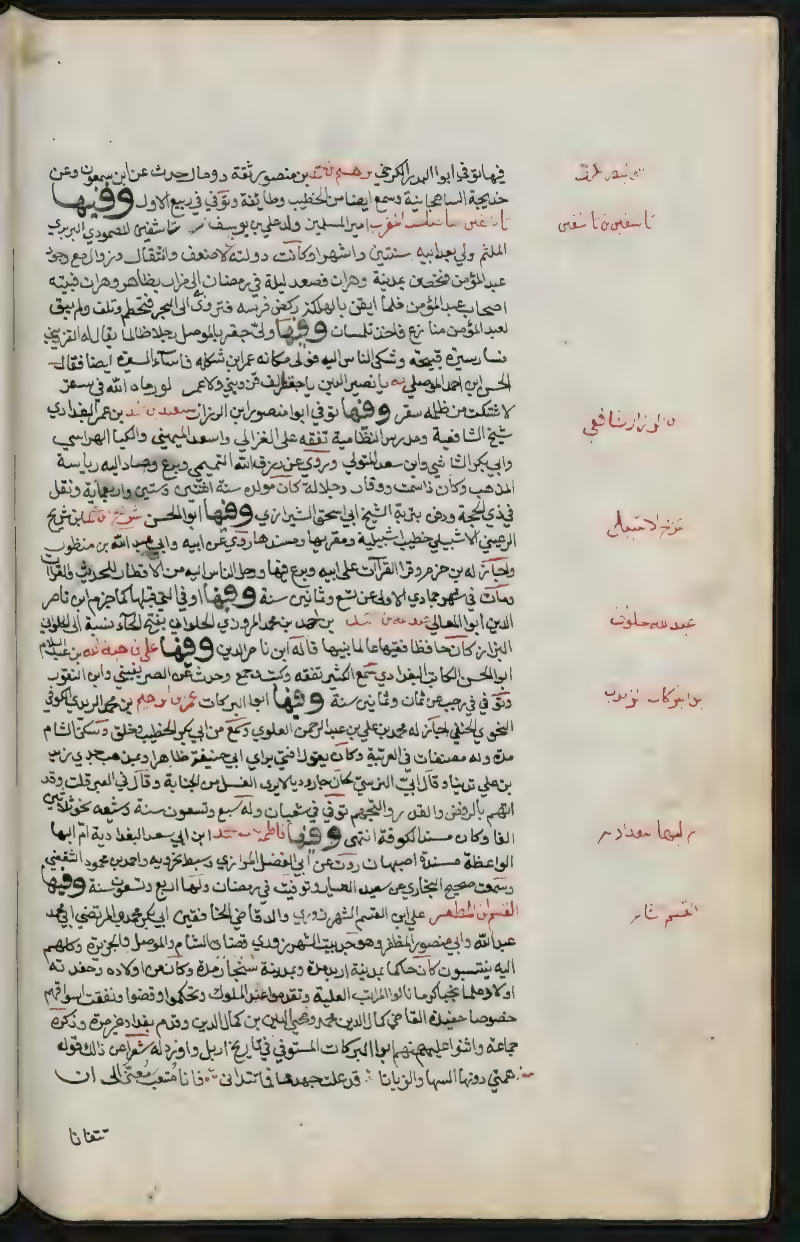 فيها توفي ابوا البدر الكرخي ابرهيم بن محمد بن منصور ثقة وحدث عن ابن سمعون وعن
خديجة الشاهجانية وسمع ايضا من الخطيب وطائفة وتوفي في ربيع الاول وفيها
تاشفين صاحب المغرب امير المسلمين ولد علي بن يوسف بن تاشفين المصمودي البربري
تاشفين بن تاشفين
الملثم ولي بعد ابيه سنتين واشهرا وكانت دولته لا ضعف وانتقال وزوال مع وجود
عبد المؤمن فتحصن بمدينة وهران فصعد ليلة في رمضان الى مزار بظاهر وهران فبيته
اصحاب عبد المؤمن فلما ايقن بالهلكة ركض فرسه فتردى الى البحر فتحطم وتلف ولم يبق
لعبد المؤمن منازع فاخذ تلمسان وفيها ولي جقر بالموصل رجلا ظالما يقال له القزويني
فسار سيرة قبيحة وشكى الناس اليه فولى مكانه عمر ابن شكله فاساء السيرة ايضا فقال
الحسن ابن احمد الموصلي يا نصير الدين يا جقر الف قزويني ولا عمر لو رماه الله في سقر
لاشتكت من ظلمه سقر وفيها توفي ابوا منصور ابن الرزاز سعيد بن محمد بن عمر البغدادي
شيخ الشافعية ومدرس النظامية تفقه على الغزالي واسعد الميهني والكيا الهراسي
وابي بكر الشاشي وابن سعد المتولي وروى عن رزق الله التميمي وبرع وصار اليه رياسة
المذهب وكان ذا سمت ووقار وجلالة كان مولده سنة اثنتين وستين واربعماية ونقل
في ذي الحجة ودفن بتربة الشيخ ابي اسحق الشيرازي وفيها ابوا الحسن شريح بن محمد بن شريح
الرعيني الاشبيلي خطيب اشبيلية ومقريها ومسندها روى عن ابيه وابي عبد الله بن منظور
شريح الاشبيلي
واجاز له بن حزم وقرا القرآت على ابيه وبرع فيها ورحل الناس اليه من الاقطار للحديث والقرآت
ومات في شهر جمادي الاولى عن تسع وثمانين سنة وفيها او في التي قبلها كما جزم ابن ناصر
الدين ابوا المعالي عبد الله بن احمد بن احمد بن محمد المروزي الحلواني بفتح الحاء نسبة الى الحلوى
عبد الله حلوان
البزاز كان حافظا فقيها عالما نبيها قاله ابن ناصر الدين وفيها علي بن هبة الله بن عبد السلام
ابوا الحسن الكاتب البغدادي سمع الكثير تفقه وكتب وجمع وحدث عن الصريفيني وابن النقور
وتوفي في رجب عن ثمان وثمانين سنة وفيها ابوا البركات عمر بن ابرهيم بن محمد الزيدي الكوفي
النحوي الحنفي اجاز له محمد بن علي بن عبد الرحمن العلوي وسمع من ابي بكر الخطيب وخلق وسكن الشام
مدة وله مصنفات في العربية وكان يقول افتي براي ابي حنيفة ظاهرا وبمذهب جدي زيد
بن علي تدينا وقال ابي النرسي كان جاروديا لا يرى الغسل من الجنابة وقال في العبر قلت وقد
اتهم بالرفض والقدر والتجهم توفي في شعبان وله سبع وتسعون سنة وشيعه نحو ثلاثين
الفا وكان مسند الكوفة انتهى وفيها فاطمة بنت محمد ابن ابي سعد البغدادية ام البها
ام البها بغدادية
الواعظة مسندة اصبهان روت عن ابي الفضل الرازي وسبط بحرويه واحمد بن محمود الثقفي
وسمعت صحيح البخاري عن سعيد العيار وتوفيت في رمضان ولها اربع وتسعون سنة وفيها
القسم بن المظفر علي ابن القسم الشهرزوري والد قاضي الخافقين ابي بكر محمد والمرتضي ابي محمد
عبد الله وابي منصور المظفر وهو جد بيت الشهرزوري قضات الشام والموصل والجزيرة وكلهم
اليه ينتسبون كان حاكما بمدينة اربل مدة وبمدينة سنجار مدة وكان من اولاده وحفدته
اولاد علماء نجباء كرماء نالوا المراتب العلية وتقدموا عند الملوك وتحكموا وقضوا ونفقت اسواقهم
خصوصا حفيده القاضي كمال الدين محمد ومحيي الدين بن كمال الدين وقدم بغداد غير مرة وذكره
جماعة واثنوا عليه منهم ابوا البركات المستوفي في تاريخ اربل واورد له شعرا من ذلك قوله
همتي دونها السها والزبانا قد علت جهدها فما تتدانى فانا متعب معنى الى ان
تتفانا